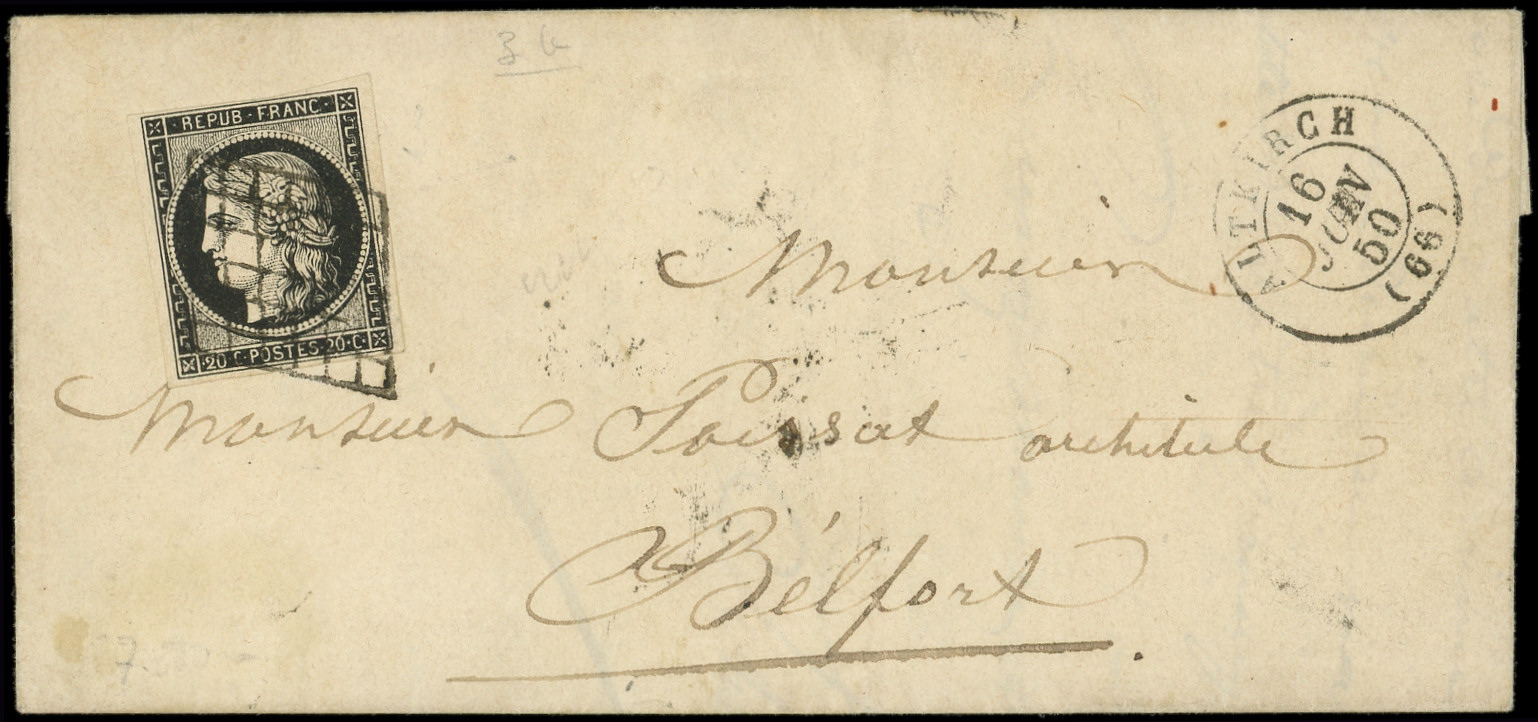 3 a
REPUB·FRANC·
20 C·POSTES·20·C·
ALTKIRCH
16
JUIN
50
(66)
Monsieur
Monsieur Poissat architecte
Bélfort